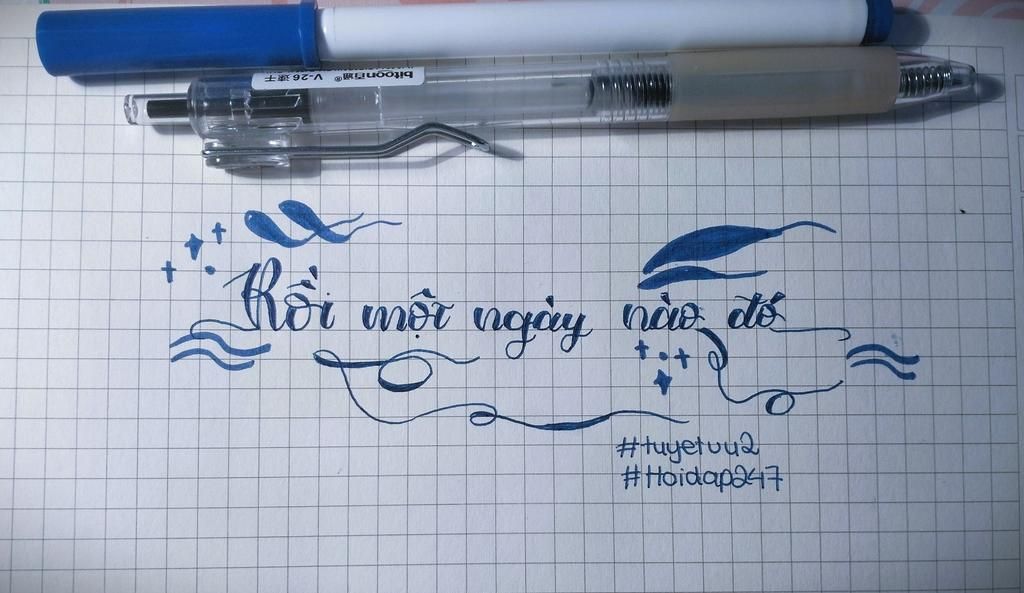 bitoon百通® V-26 速干
Rồi một ngày nào đó
#tuyetvu2
#Hoidap247